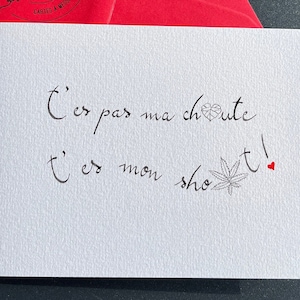 t'es pas ma choute
t'es mon shoot!